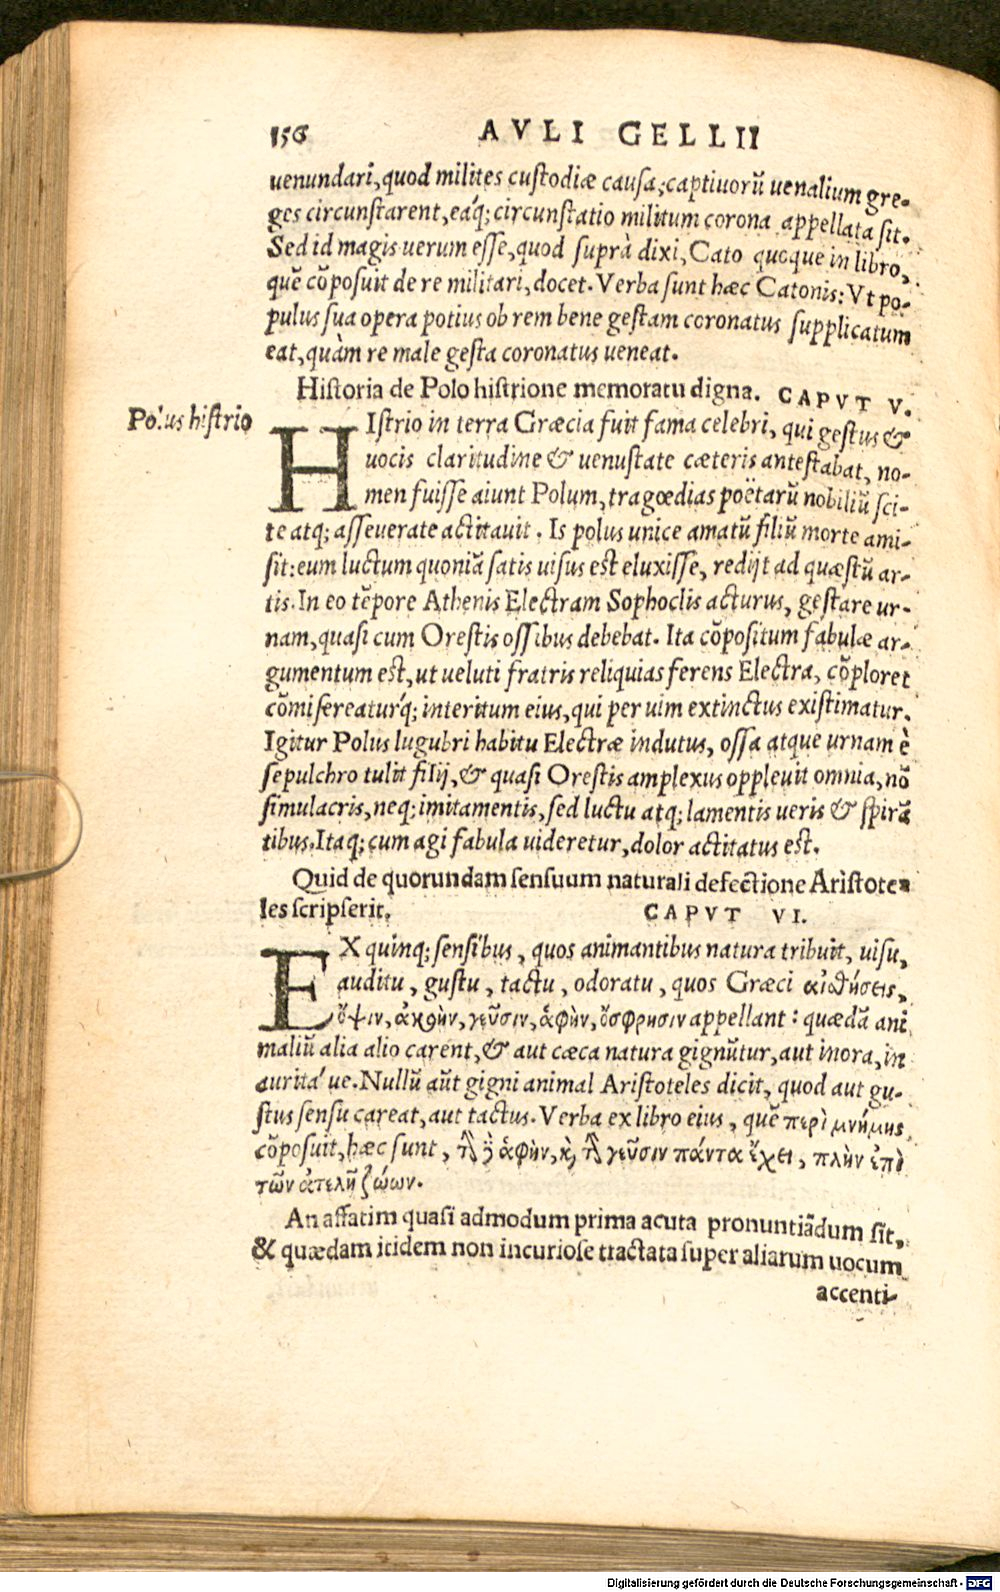 156 AVLI GELLII
uenundari, quod milites custodiæ causa; captiuorũ uenalium gre-
ges circunstarent, eáq; circunstatio militum corona appellata sit.
Sed id magis uerum esse, quod suprà dixi, Cato quoque in libro,
quẽ cõposuit de re militari, docet. Verba sunt hæc Catonis: Vt po-
pulus sua opera potius ob rem bene gestam coronatus supplicatum
eat, quàm re male gesta coronatus ueneat.
Historia de Polo histrione memoratu digna. CAPVT V.
Polus histrio
HIstrio in terra Græcia fuit fama celebri, qui gestus &
uocis claritudine & uenustate cæteris antestabat, no-
men fuisse aiunt Polum, tragœdias poëtarũ nobiliũ sci-
te atq; asseuerate actitauit. Is polus unice amatũ filiũ morte ami-
sit: eum luctum quoniã satis uisus est eluxisse, redijt ad quæstũ ar-
tis. In eo tẽpore Athenis Electram Sophoclis acturus, gestare ur-
nam, quasi cum Orestis ossibus debebat. Ita cõpositum fabulæ ar-
gumentum est, ut ueluti fratris reliquias ferens Electra, cõploret
cõmisereaturq́; interitum eius, qui per uim extinctus existimatur.
Igitur Polus lugubri habitu Electræ indutus, ossa atque urnam è
sepulchro tulit filij, & quasi Orestis amplexus oppleuit omnia, nõ
simulacris, neq; imitamentis, sed luctu atq; lamentis ueris & spirã
tibus. Itaq; cum agi fabula uideretur, dolor actitatus est.
Quid de quorundam sensuum naturali defectione Aristote-
les scripserit. CAPVT VI.
EX quinq; sensibus, quos animantibus natura tribuit, uisu,
auditu, gustu, tactu, odoratu, quos Græci αἰσθήσεις,
ὄψιν, ἀκοὴν, γεῦσιν, ἁφὴν, ὄσφρησιν appellant: quædã ani
maliũ alia alio carent, & aut cæca natura gignũtur, aut inora, in
auritá ue. Nullũ aũt gigni animal Aristoteles dicit, quod aut gu-
stus sensu careat, aut tactus. Verba ex libro eius, quẽ περὶ μνήμης
cõposuit, hæc sunt, τὴν δὲ ἁφὴν, καὶ τὴν γεῦσιν πάντα ἔχει, πλὴν ἐπὶ
τῶν ἀτελῆ ζώων.
An affatim quasi admodum prima acuta pronuntiãdum sit,
& quædam itidem non incuriose tractata super aliarum uocum
accenti-
Digitalisierung gefördert durch die Deutsche Forschungsgemeinschaft - DFG